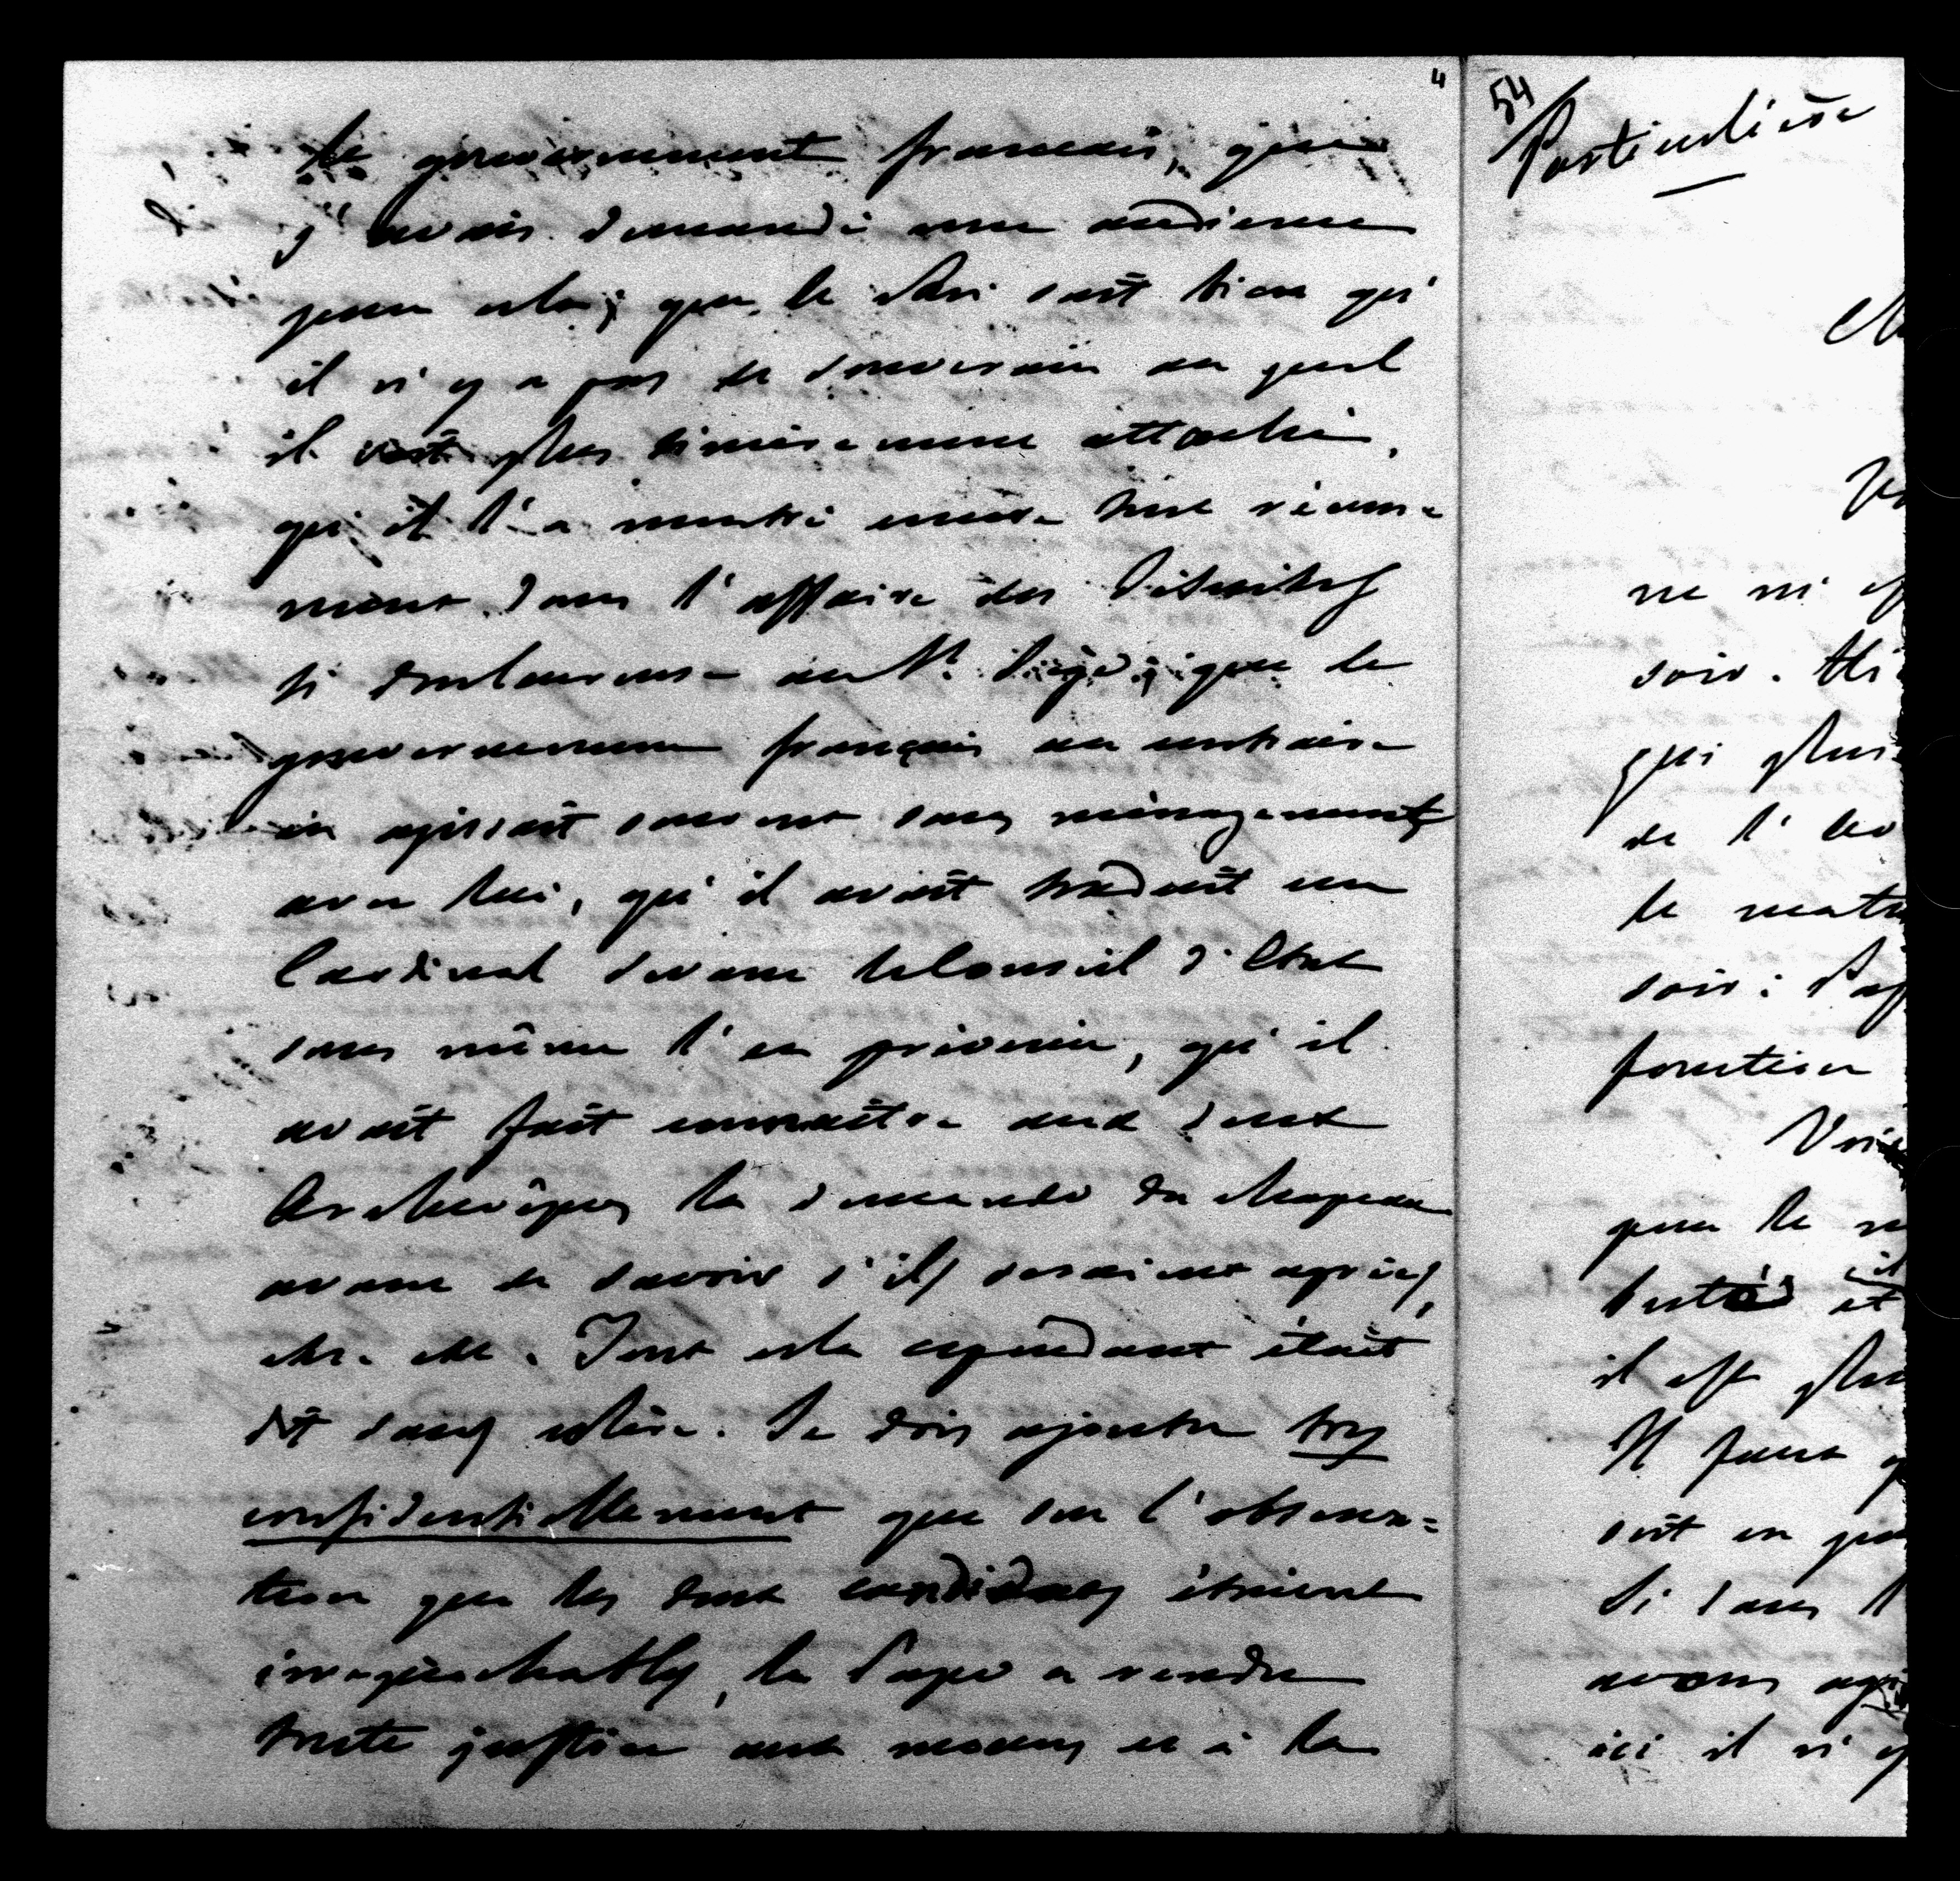 4
le gouvernement français, que
j'avais demandé une audience
pour cela; que le Roi sait bien qu'
il n'y a pas de souverain au quel
il soit plus sincèrement attaché,
qu'il l'a montré encore tout récem=
ment dans l'affaire des Jésuites
si douloureuse au St. Siège; que le
gouvernement français au contraire
en agissait souvent sans ménagements
avec lui, qu'il avait traduit un
Cardinal devant le Conseil d'Etat
sans même l'en prévenir, qu'il
avait fait connaître aux deux
Archevêques la demande du chapeau
avant de savoir s'ils seraient agréés,
etc. etc. Tout cela cependant était
dit sans colère. Je dois ajouter très
confidentiellement que sur l'observa=
tion que les deux candidats étaient
irréprochables, le Pape a rendu
toute justice aux mœurs et à la
54
Particulière
ne m'
soir.
qui plus
de l'
le
soir:
fonction
pour le
il
et
il est
Il faut
soit en
Si dans
avons
ici il n'y